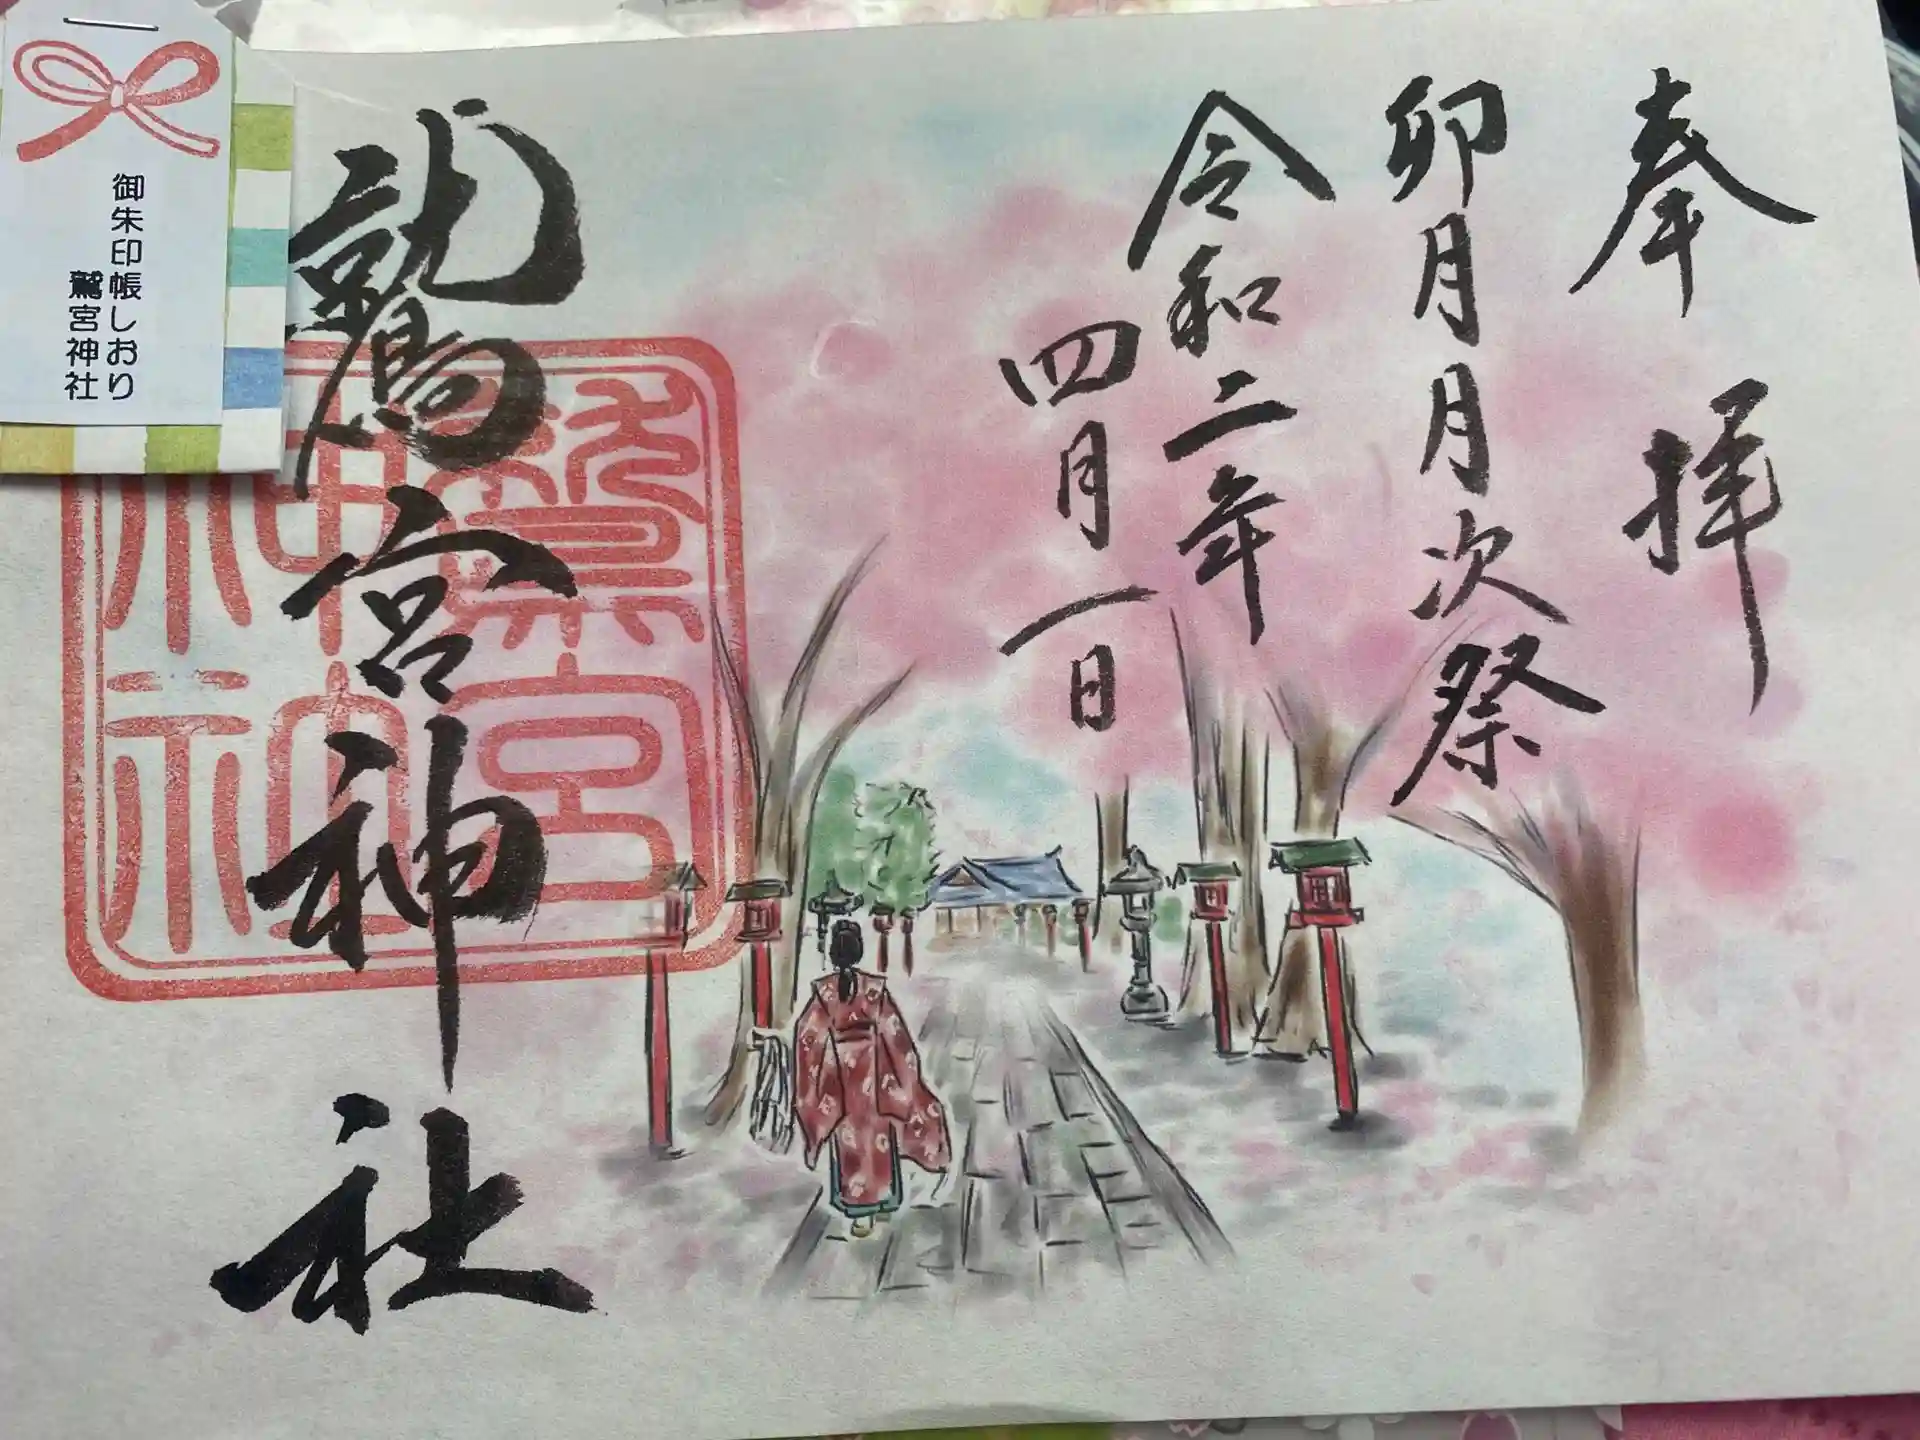 奉拝
卯月月次祭
令和二年
四月一日
鷲宮神社
鷲宮神社
御朱印帳しおり
鷲宮神社